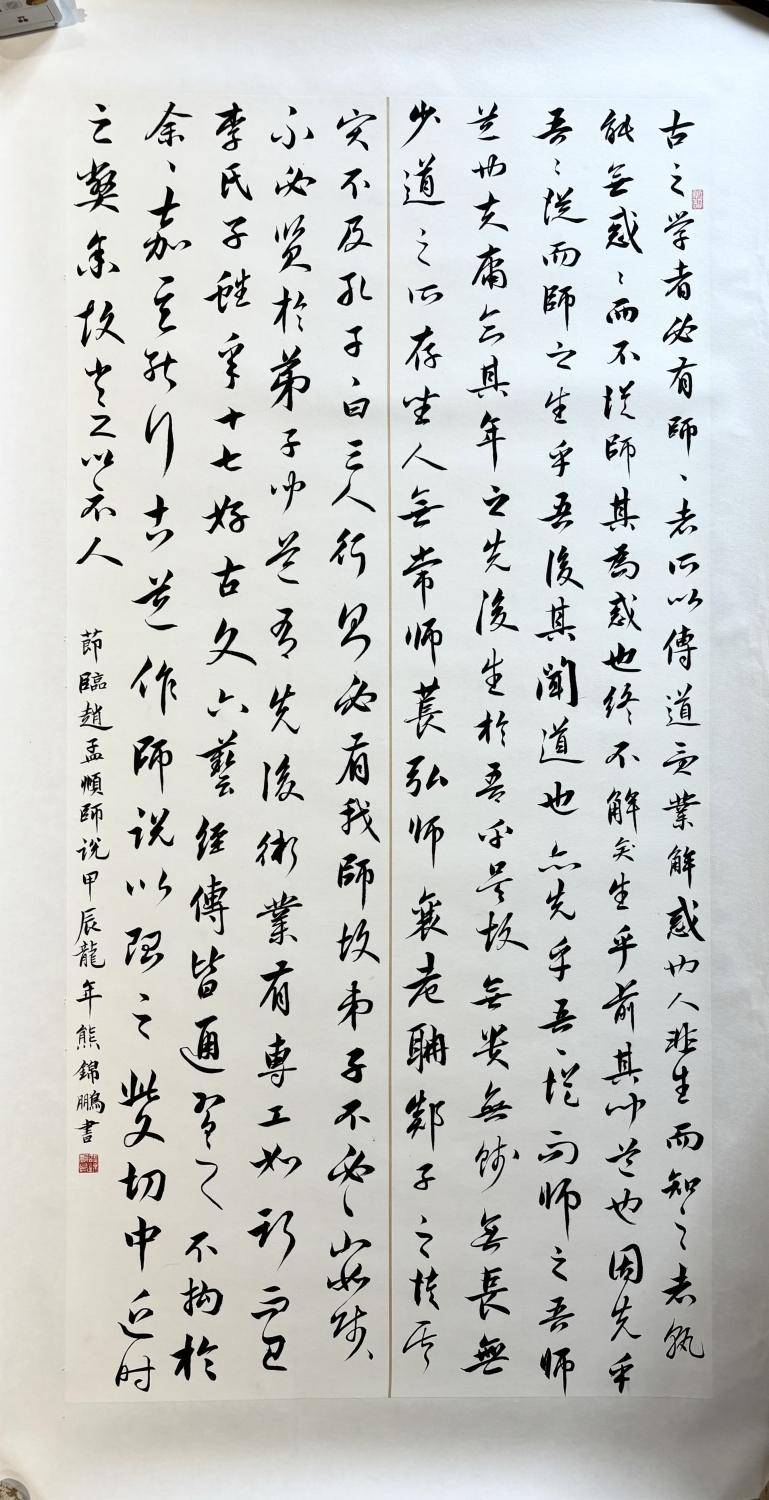 古之学者必有師〻者所以傳道受業解惑也人非生而知之者孰
能無惑〻而不從師其為惑也終不解矣生乎前其聞道也固先乎
吾〻從而師之生乎吾後其聞道也亦先乎吾〻從而師之吾師
道也夫庸知其年之先後生於吾乎是故無贵無賤無長無
少道之所存坐人無常師萇弘師襄老聃郯子之徒其
贤不及孔子〻曰三人行則必有我師故弟子不必〻如師〻
不必贤於弟子聞道有先後術業有専工如斯而已
李氏子蟠年十七好古文六藝经傳皆通習之不拘於
余〻嘉其能行古道作師说以貽之此文切中近时
之弊余故書之以示人
節臨趙孟頫師说甲辰龍年熊錦鵬書